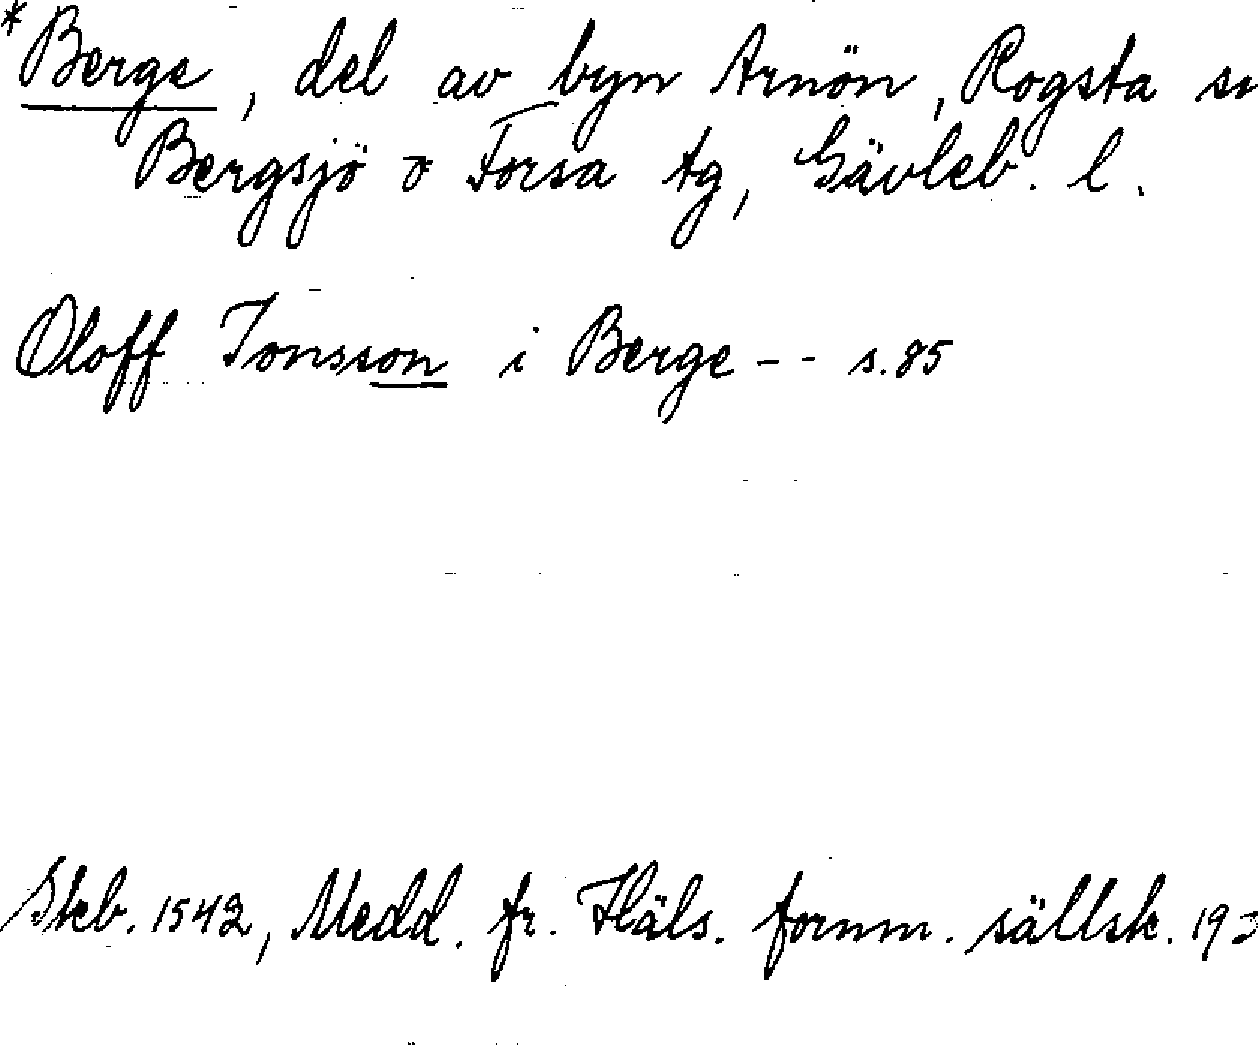 *Berge, del av byn Arnön, Rogsta sn
Bergsjö o Forsa tg, Gävleb. l.
Oloff Jonsson i Berge -- s. 85
Skb. 1542, Medd. fr. Häls. fornm. sällsk. 193